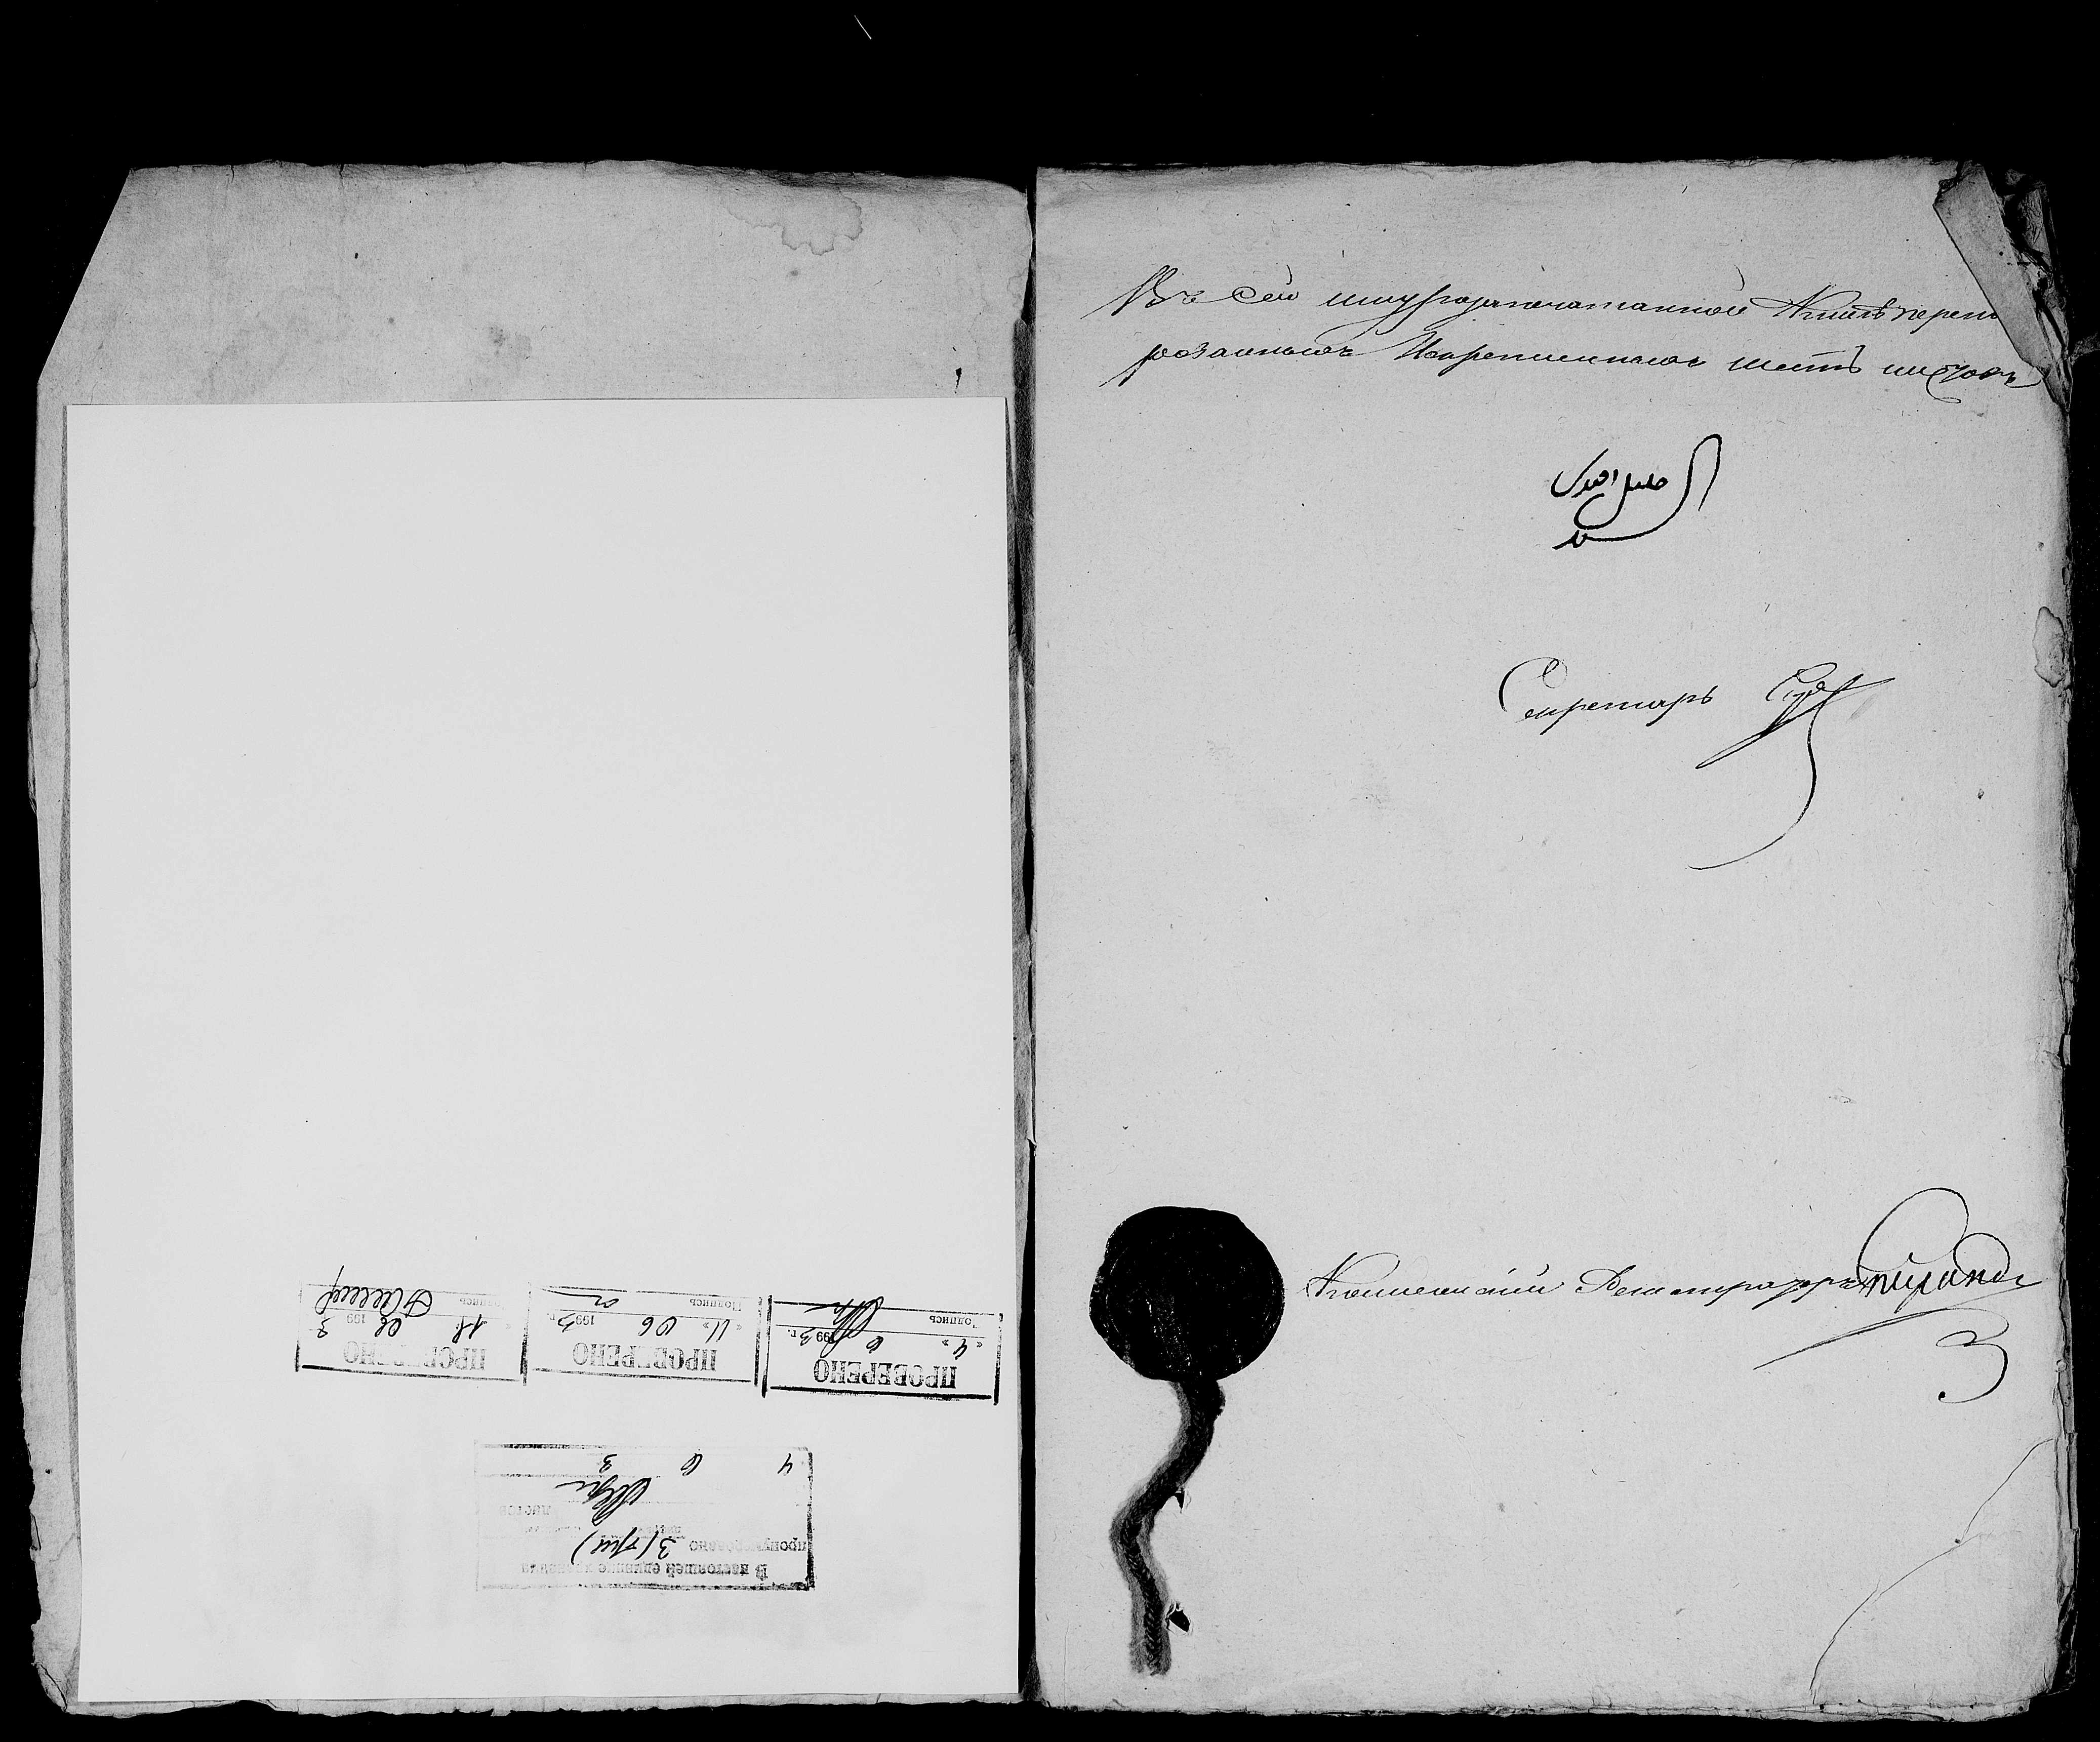 Въ сей шнурозапечатанной Книгѣ перену
розанныхъ Искрепленныхъ шесть листовъ
خليل افندى
Секретарь
Коллежскій Регистраторъ
ПРОВЕРЕНО
« 4 » 6 1993 г.
Подпись
ПРОВЕРЕНО
« 11 » 06 1993 г.
Подпись
ПРОВЕРЕНО
18 06 1993
Подпись
В настоящей единице хранения
пронумеровано 3 (три)
листов
4 6 3